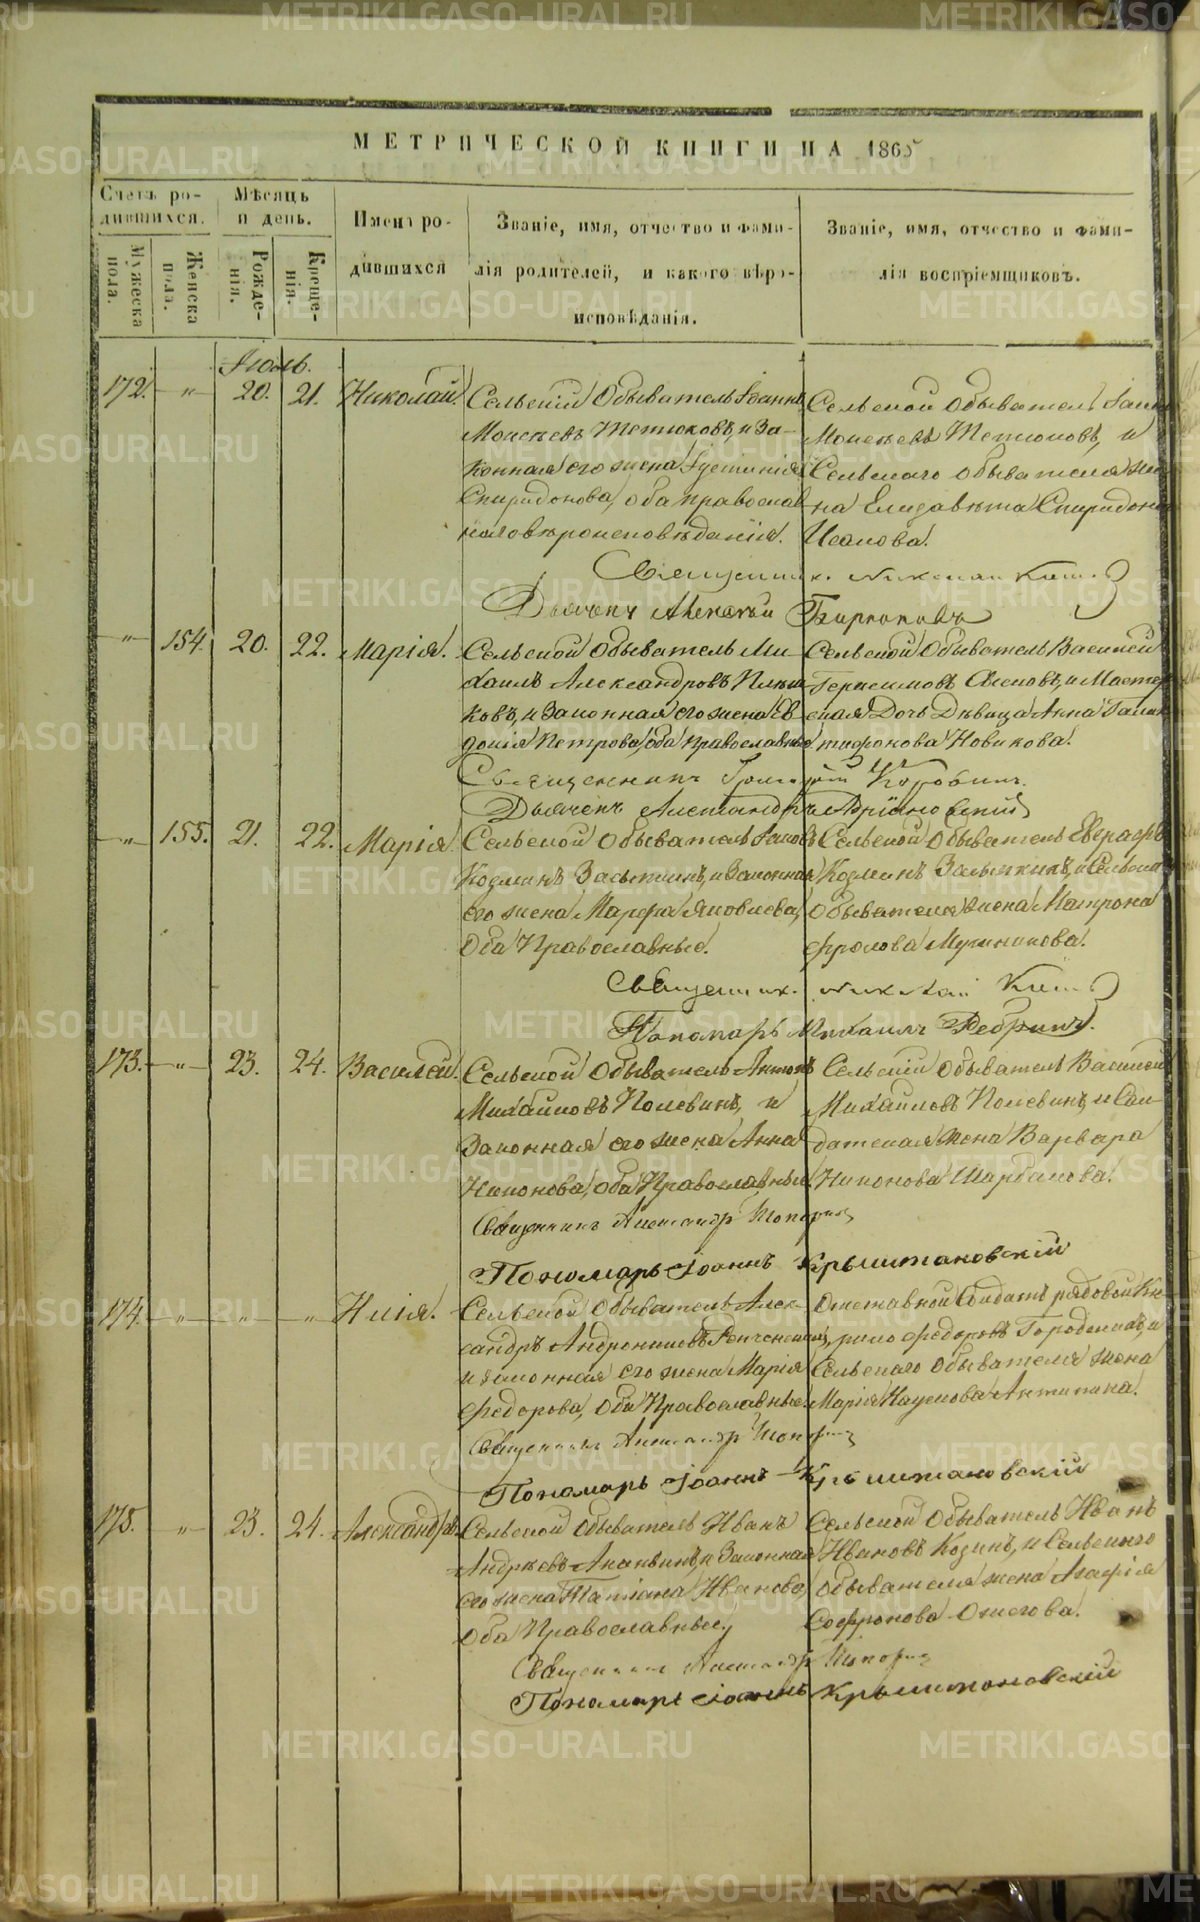 МЕТРИЧЕСКОЙ КНИГИ НА 1865
Счетъ ро-
дившихся.
Мѣсяцъ
и день.
Имена ро-
дившихся
Званіе, имя, отчество и фами-
лія родителей, и какого вѣро-
исповѣданія.
Званіе, имя, отчество и фами-
лія воспріемщиковъ.
Мужеска
пола.
Женска
пола.
Рожде-
нія.
Креще-
нія.
Іюль.
172. " 20. 21. Николай.
Сельскій Обыватель Іоаннъ
Моисѣевъ Тетюковъ, и За-
конная его жена Іустинія
Спиридонова, оба православ
наго вѣроисповѣданія.
Сельской Обыватель
Моисѣевъ Тетюковъ, и
Сельскаго обывателя же
на Елизавѣта Спиридоно
Исакова.
Священник. Николай
Дьячекъ Алексѣй Бирюковъ
" 154. 20. 22. Марія.
Сельской Обыватель Ми-
хаилъ Александровъ
ковъ, и Законная его жена Ев
докія Петрова, оба православные
Сельской Обыватель Василій
Герасимовъ и Мастер
ская Дочь Дѣвица Анна Галак
тіонова Новикова.
Священникъ Григорій Коровин.
Дьячекъ Александръ Адріановскій
" 155. 21. 22. Марія.
Сельской Обыватель Іаковъ
Козминъ Засыпкинъ, и Законная
его жена Марфа Яковлева,
Оба Православные.
Сельской Обыватель Евграфъ
Козминъ Засыпкинъ, и Сельска
Обывателя жена Матрона
Фролова
Священник. Николай
Пономарь Михаилъ Ребринъ.
173. " 23. 24. Василій.
Сельской Обыватель Антонъ
Михайловъ Полевинъ, и
Законная его жена Анна
Никонова, оба Православные
Сельскій Обыватель Василій
Михайловъ Полевинъ, и Сол-
датская жена Варвара
Никонова
Священникъ Александр Топорков
Пономарь Іоаннъ Крыштановскій
174. " " " Илія.
Сельской Обыватель Алек-
сандръ Андрониковъ
и законная его жена Марія
Федорова, Оба Православные.
Отставной Солдатъ рядовой Ки
рило Федоровъ Городскихъ, и
Сельскаго Обывателя жена
Марія Наумова Антипина.
Священникъ Александр
Пономарь Іоаннъ Крыштановскій
175. " 23. 24. Александръ.
Сельской Обыватель Иванъ
Андрѣевъ Ананьинъ, и Законная
его жена Татіана Иванова,
Оба Православные,
Сельской Обыватель Иванъ
Ивановъ Козинъ, и Сельскаго
Обывателя жена Агафія
Софронова Ожегова.
Священникъ Александр
Пономарь Іоаннъ Крыштановскій
METRIKI.GASO-URAL.RU